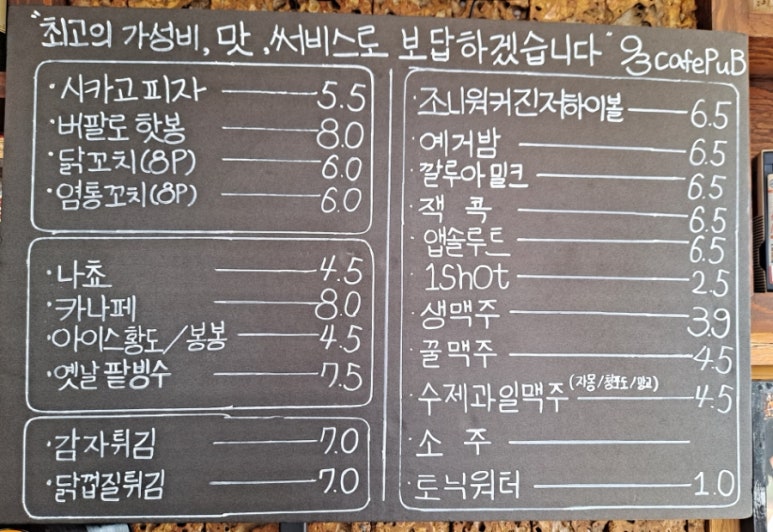 "최고의 가성비, 맛, 써비스로 보답하겠습니다" 93cafePuB
·시카고 피자 5.5
·버팔로 핫봉 8.0
·닭꼬치(8P) 6.0
·염통꼬치(8P) 6.0
·나쵸 4.5
·카나페 8.0
·아이스황도/봉봉 4.5
·옛날 팥빙수 7.5
·감자튀김 7.0
·닭껍질튀김 7.0
·조니워커진저하이볼 6.5
·예거밤 6.5
·깔루아 밀크 6.5
·잭 콕 6.5
·앱솔루트 6.5
1Shot 2.5
·생맥주 3.9
·꿀맥주 4.5
·수제과일맥주(자몽/청포도/망고) 4.5
·소 주
·토닉워터 1.0